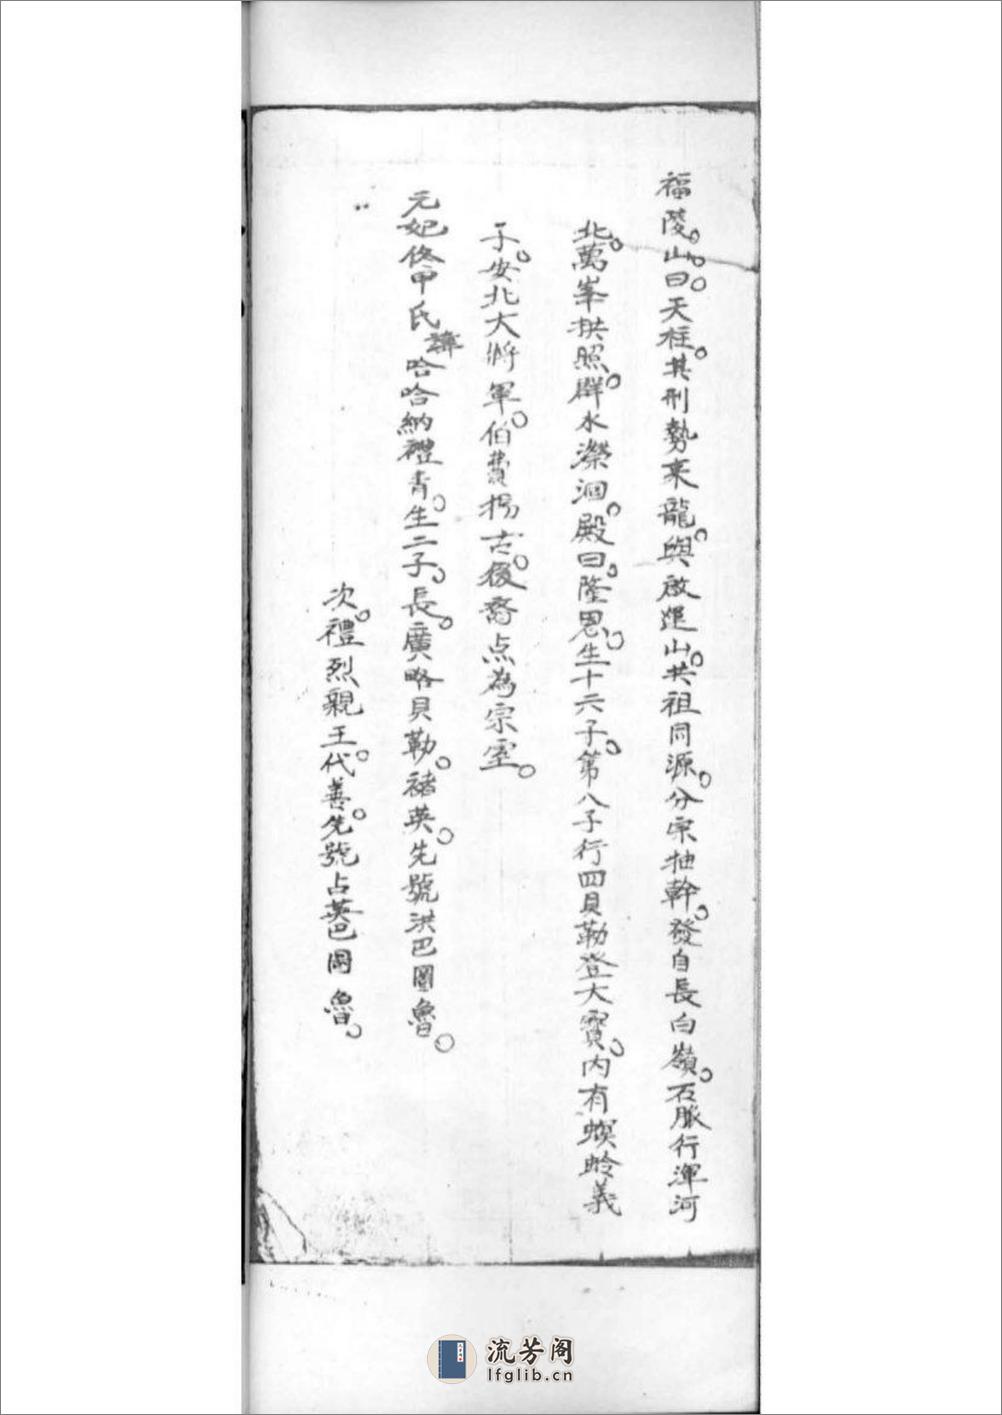 福陵。山。曰。天柱。其刑勢來龍。與啟運山。共祖同源。分宗抽幹。發自長白嶺。石脈行渾河
北。萬峯拱照。群水濚洄。殿曰。隆恩。生十六子。第八子行四貝勒登大寶。內有螟蛉義
子。安北大將軍。伯費揚古。後裔点為宗室。
元妃佟甲氏諱哈哈納禮青。生二子。長。廣略貝勒。褚英。先號洪巴圖魯。
次。禮烈親王。代善。先號占英巴圖魯。
流芳阁
lfglib.cn